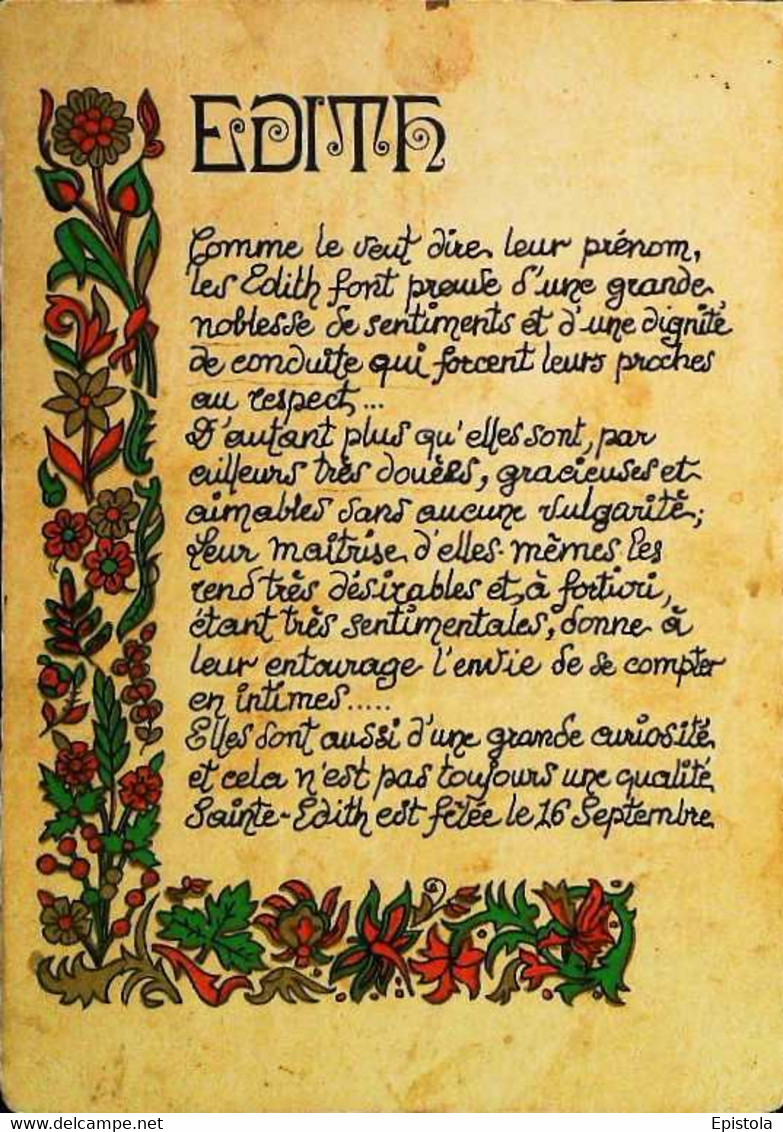 EDITH
Comme le veut dire leur prénom,
les Edith font preuve d'une grande
noblesse de sentiments et d'une dignité
de conduite qui forcent leurs proches
au respect...
D'autant plus qu'elles sont, par
ailleurs très douées, gracieuses et
aimables sans aucune vulgarité;
Leur maîtrise d'elles-mêmes les
rend très désirables et, à fortiori,
étant très sentimentales, donne à
leur entourage l'envie de se compter
en intimes.....
Elles sont aussi d'une grande curiosité
et cela n'est pas toujours une qualité
Sainte-Edith est fêtée le 16 Septembre
www.delcampe.net
Epistola